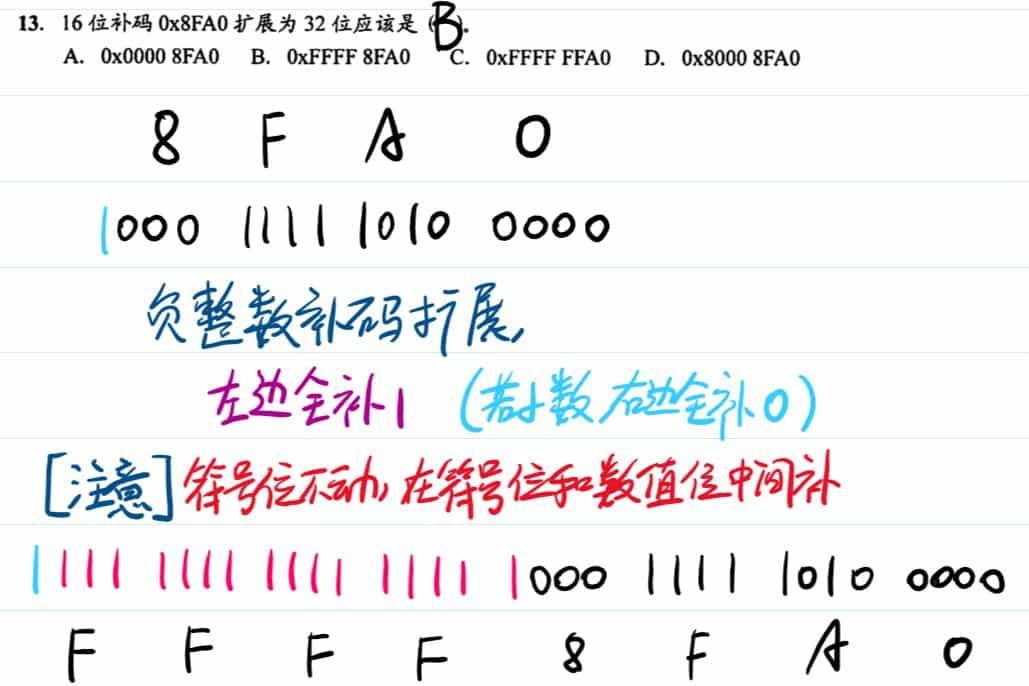 13. 16 位补码 0x8FA0 扩展为 32 位应该是 (B).
A. 0x0000 8FA0 B. 0xFFFF 8FA0 C. 0xFFFF FFA0 D. 0x8000 8FA0
8 F A 0
1000 1111 1010 0000
负整数补码扩展,
左边全补1 (若小数,右边全补0)
[注意]符号位不动,在符号位和数值位中间补
1111 1111 1111 1111 1000 1111 1010 0000
F F F F 8 F A 0